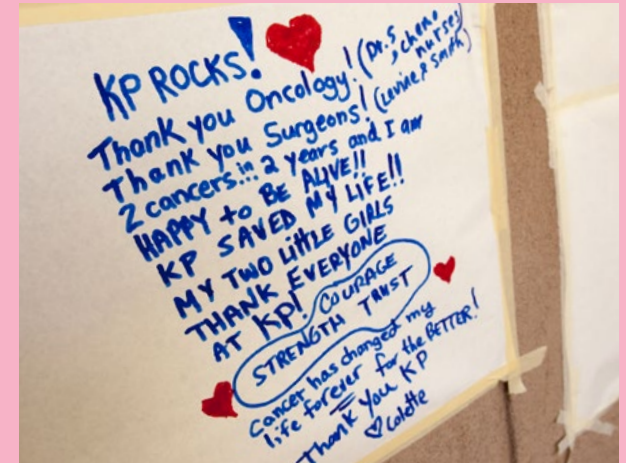 KP ROCKS!
Thank you Oncology! (Dr. S, chemo nurses)
Thank you Surgeons! (Levine & Smith)
2 cancers in 2 years and I am
HAPPY to BE ALIVE!!
KP SAVED MY LIFE!!
MY TWO LITTLE GIRLS
THANK EVERYONE
AT KP! COURAGE
STRENGTH TRUST
Cancer has changed my
life forever for the BETTER!
Thank You KP
♡ Colette